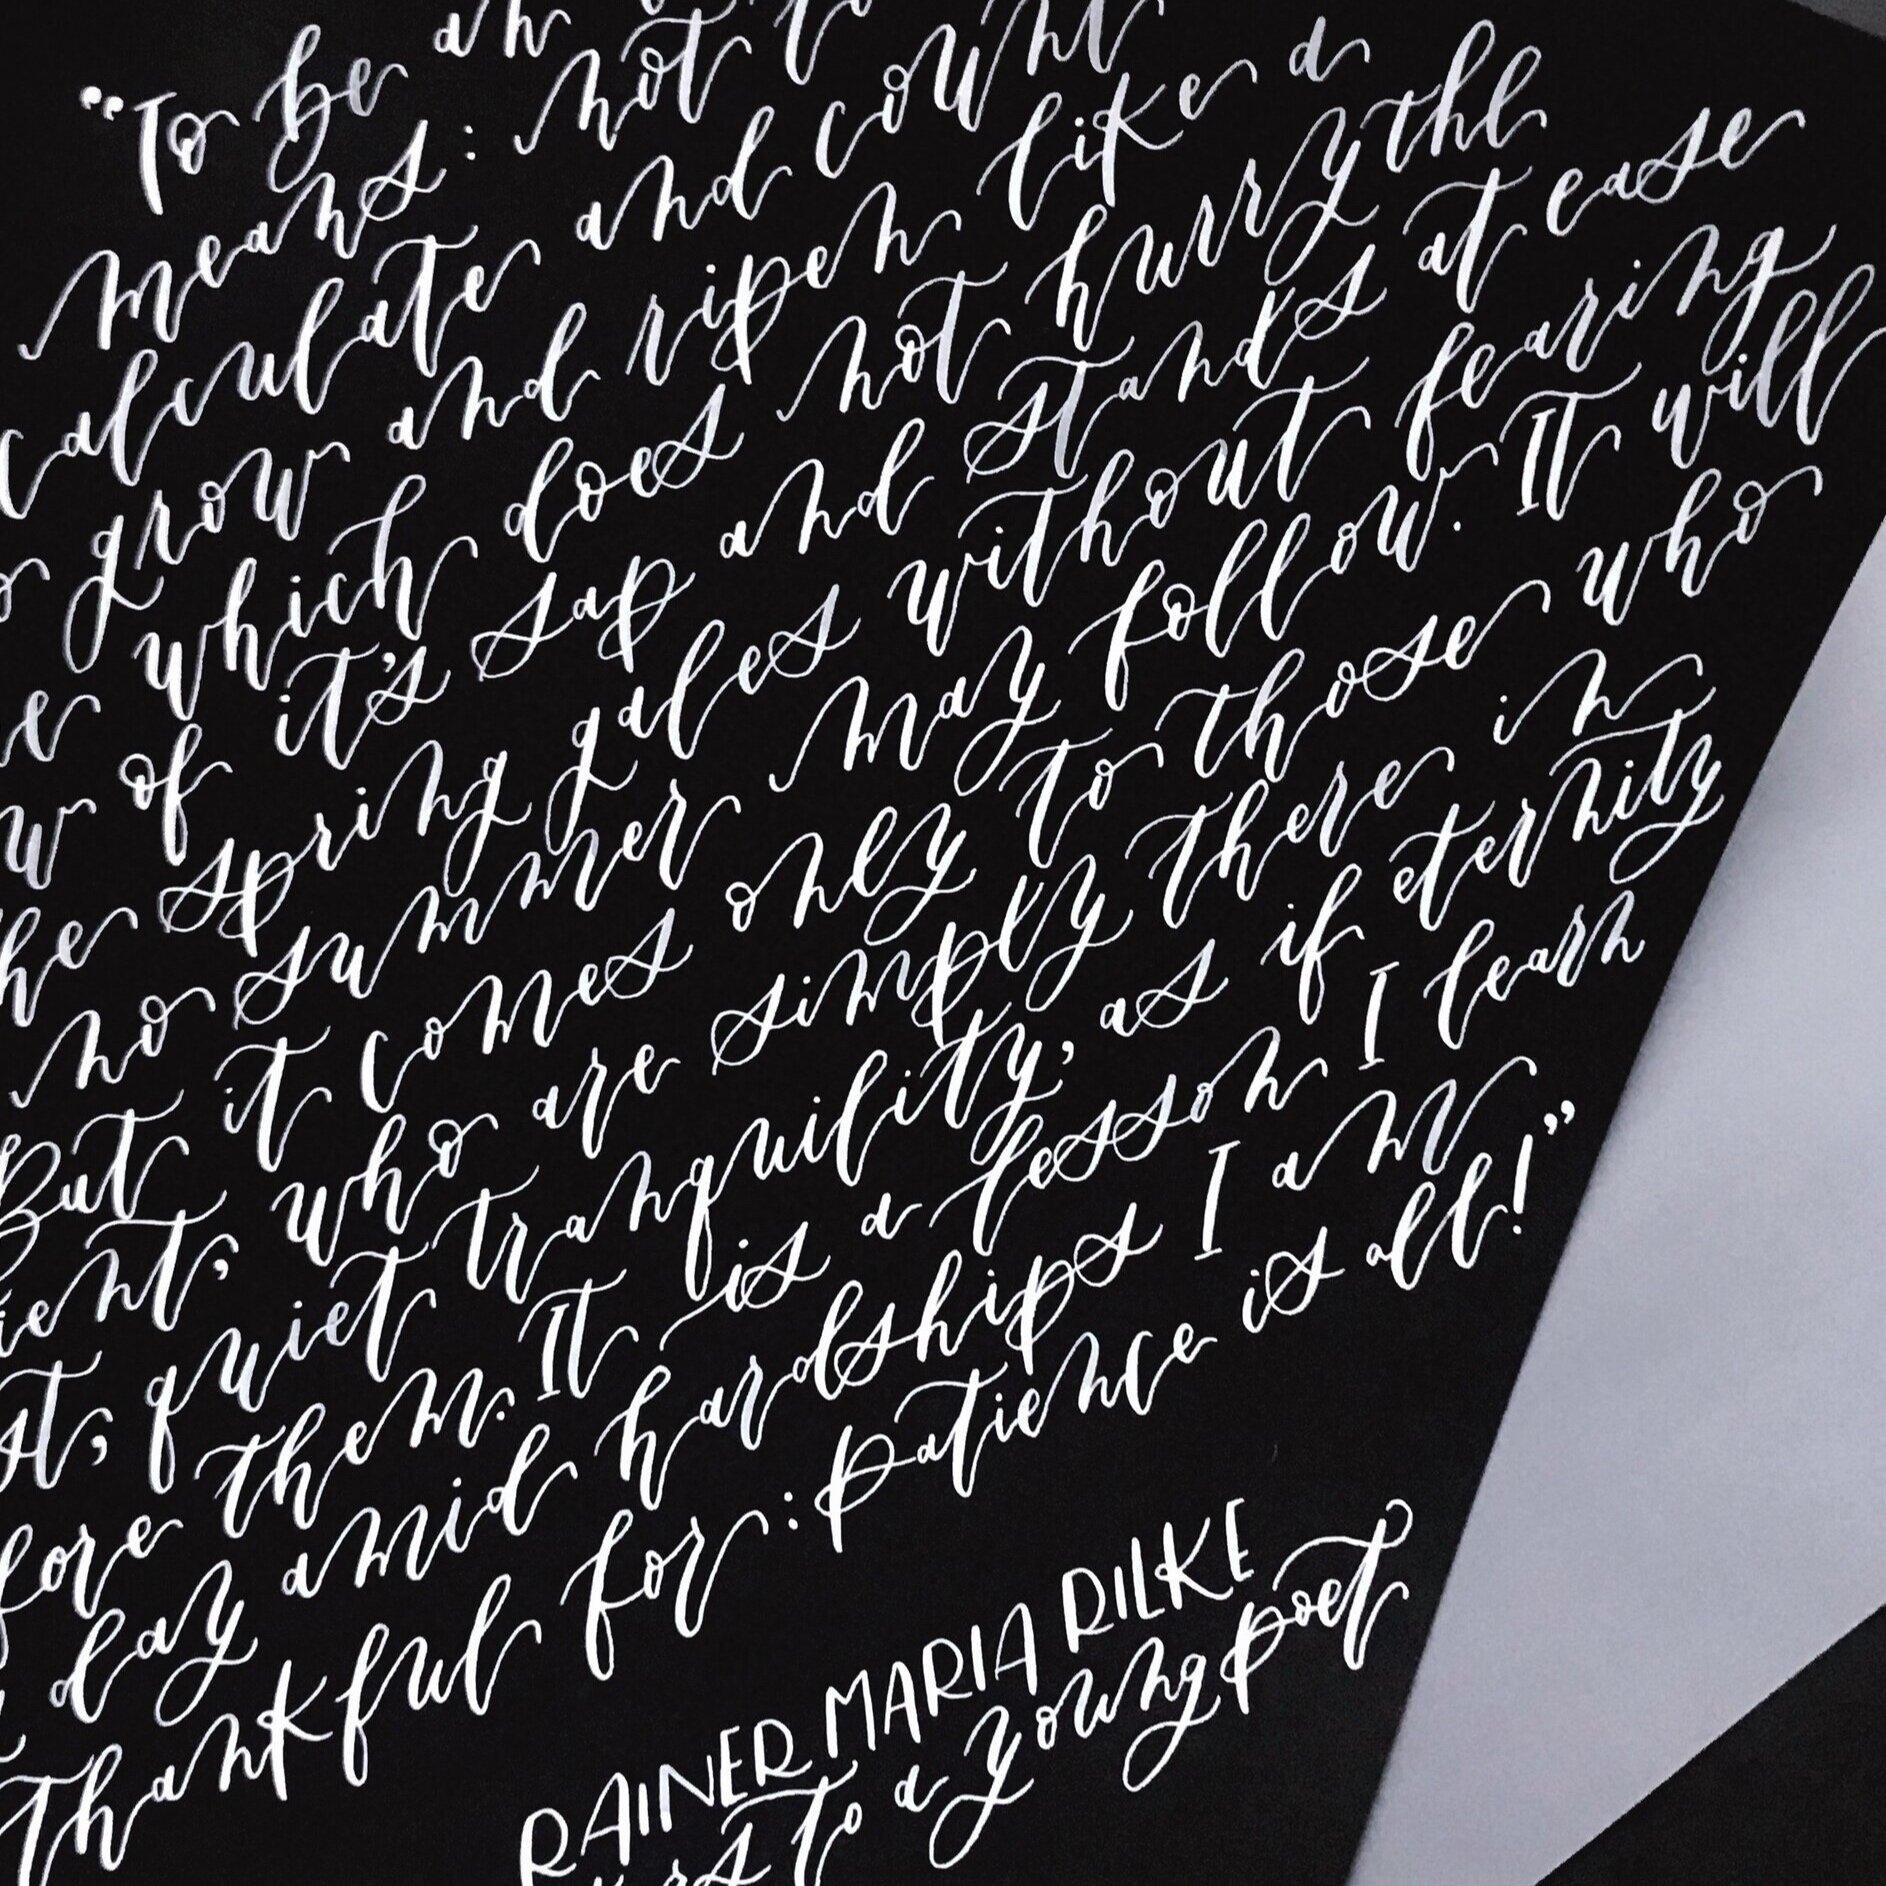 "To be an
means: not to
calculate and count
grow and ripen like a
which does not hurry the
of it's sap and stands at ease
he spring gales without fearing
no summer may follow. It will
But it comes only to those who
ient, who are simply there in
st, quiet tranquility, as if eternity
fore them. It is a lesson I learn
day amid hardships I am
Thankful for: patience is all!"
RAINER MARIA RILKE
to a young poet